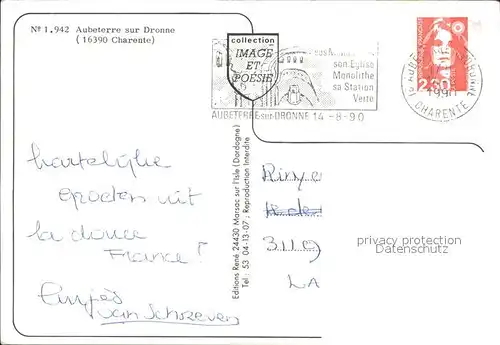 Nº 1.942 Aubeterre sur Dronne
(16390 Charente)
collection
IMAGE
ET
POÉSIE
son Eglise
Monolithe
sa Station
Verte
AUBETERRE-sur-DRONNE 14-8-90
CHARENTE
hartelijke
groeten uit
la douce
France!
van Schreven
Editions René 24430 Marsac sur l'Isle (Dordogne)
Tel : 53 04-13-07 : Reproduction Interdite
3119
LA
privacy protection
Datenschutz